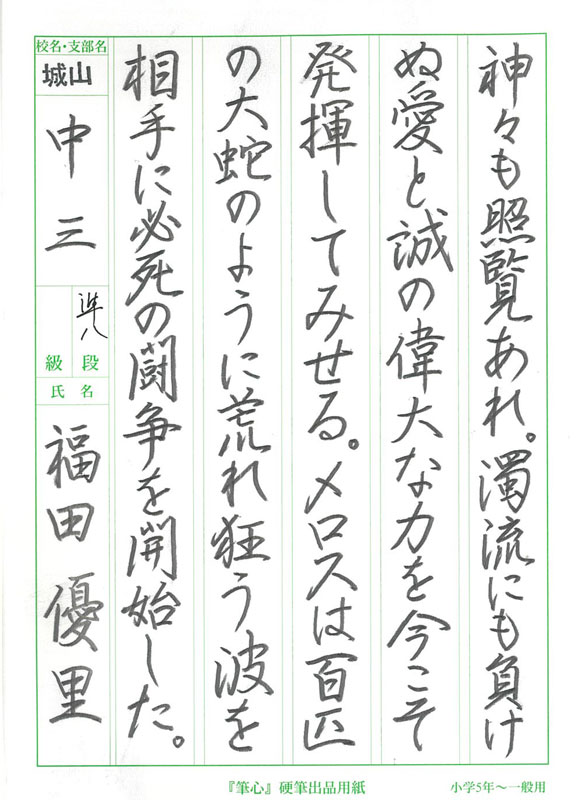 神々も照覧あれ。濁流にも負け
ぬ愛と誠の偉大な力を今こそ
発揮してみせる。メロスは百匹
の大蛇のように荒れ狂う波を
相手に必死の闘争を開始した。
校名・支部名
城山
中三
準八
段
級
氏名
福田優里
『筆心』硬筆出品用紙
小学5年～一般用